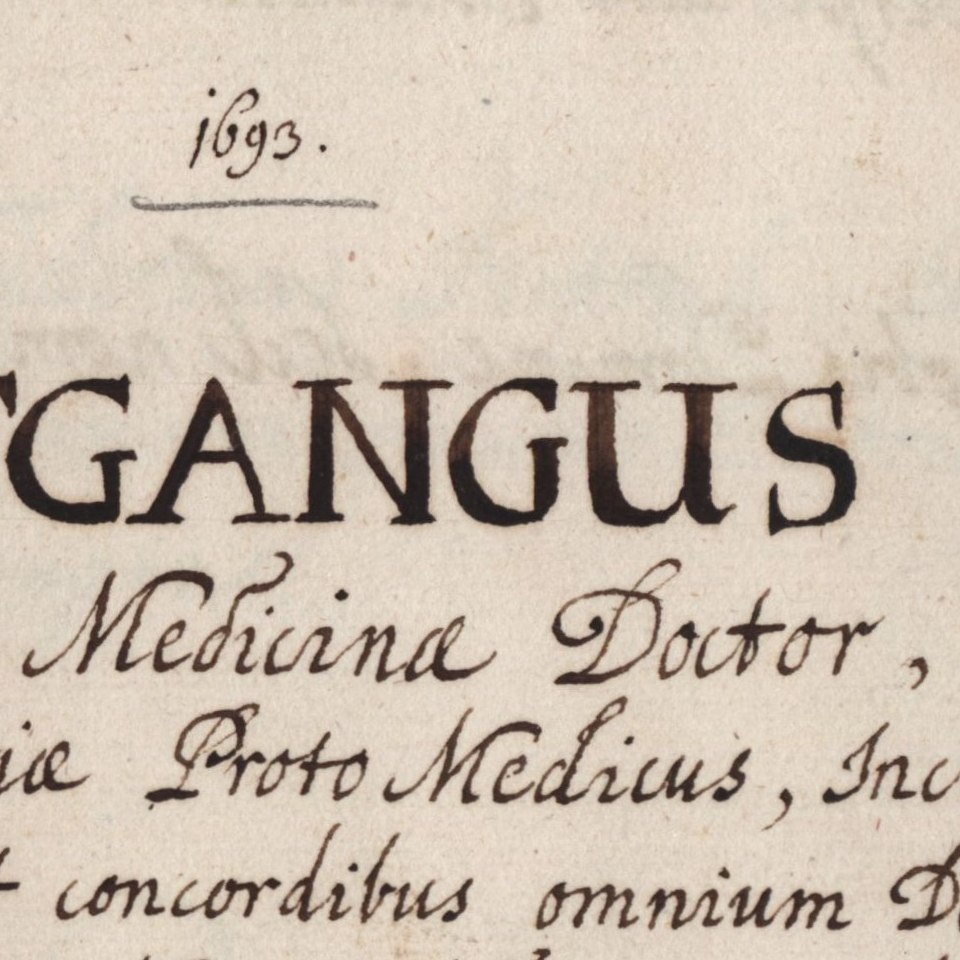 1693.
GANGUS
Medicinæ Doctor,
iæ Proto Medicus, Inc
t concordibus omnium D